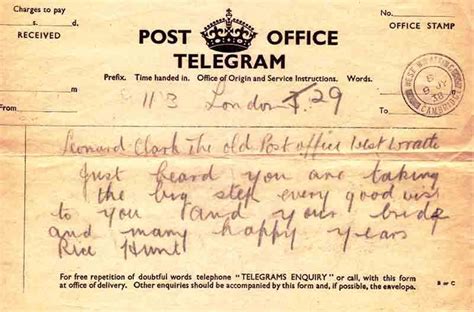 Charges to pay
s. d.
RECEIVED
POST OFFICE
TELEGRAM
No.
OFFICE STAMP
Prefix. Time handed in. Office of Origin and Service Instructions. Words.
113 London T. 29
Leonard Clark The old Post office West Wratti
Just heard you are taking
the big step every good wish
to you and your bride
and many happy years
Rice Hunt
For free repetition of doubtful words telephone "TELEGRAMS ENQUIRY" or call, with this form
at office of delivery. Other enquiries should be accompanied by this form and, if possible, the envelope.
B or C